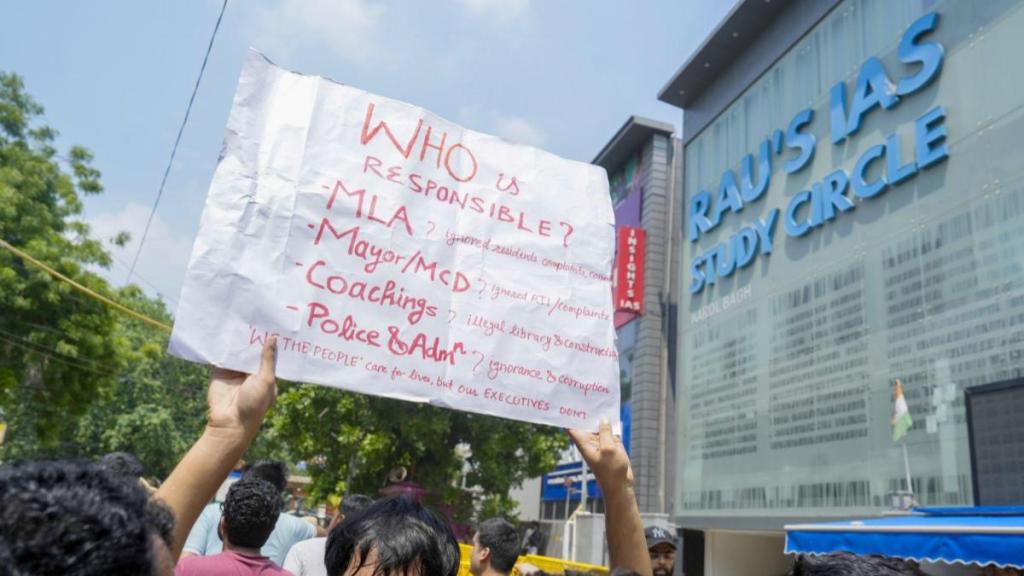 WHO is
RESPONSIBLE?
- MLA ? ignored residents complaints
- Mayor/MCD ? ignored RTI/complaints
- Coachings ? illegal library & construction
- Police & Admn ? ignorance & corruption
'WE THE PEOPLE' care for lives, but OUR EXECUTIVES DON'T
INSIGHT IAS
RAU'S IAS
STUDY CIRCLE
KAROL BAGH